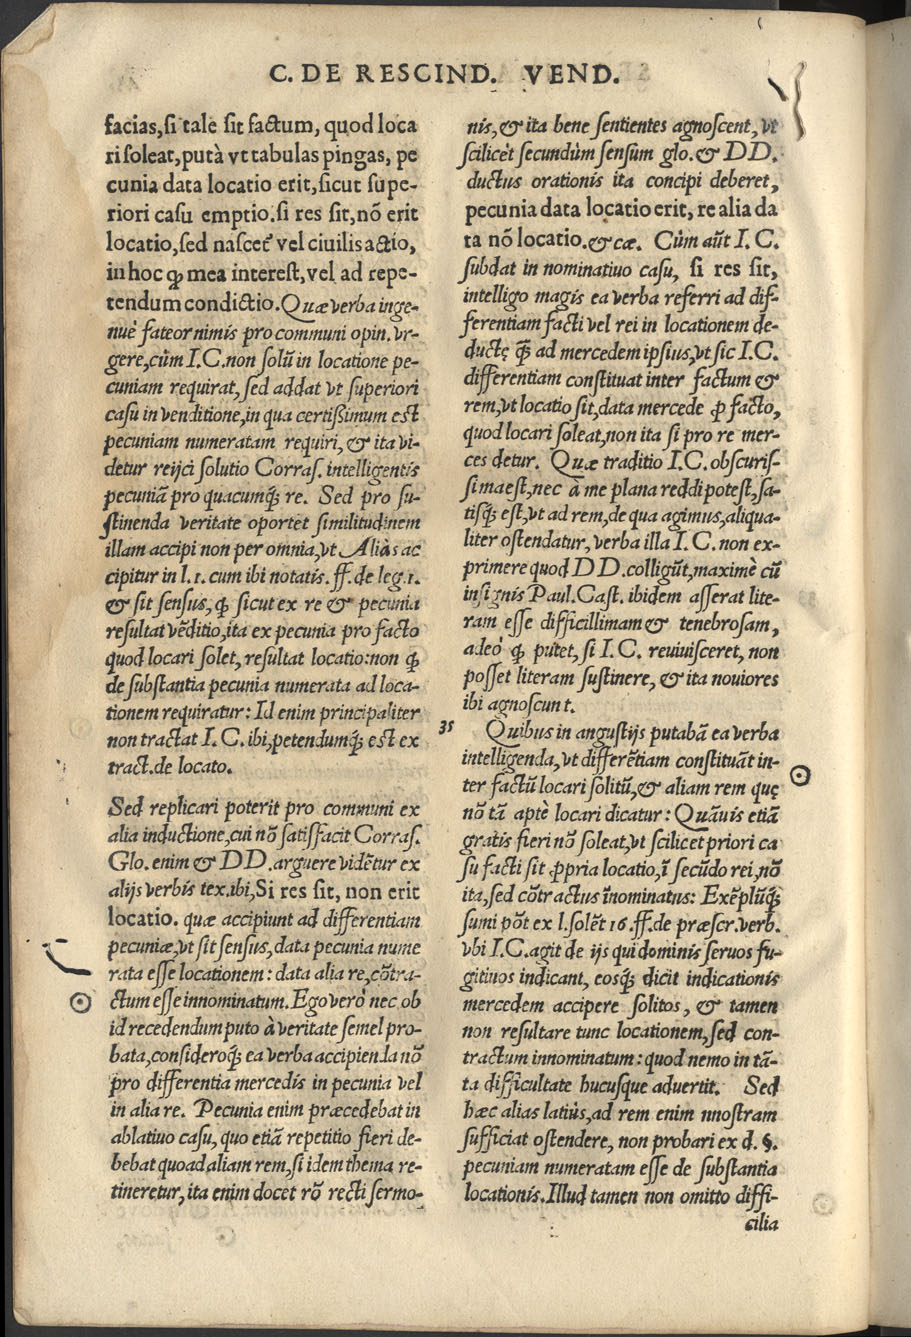 C. DE RESCIND. VEND.
facias, si tale sit factum, quod loca
ri soleat, putà vt tabulas pingas, pe
cunia data locatio erit, sicut supe-
riori casu emptio. si res sit, nõ erit
locatio, sed nascet᷑ vel ciuilis actio,
in hoc ꝙ mea interest, vel ad repe-
tendum condictio. Quæ verba inge-
nuè fateor nimis pro communi opin. vr-
gere, cùm I.C. non solũ in locatione pe-
cuniam requirat, sed addat vt superiori
casu in venditione, in qua certißimum est
pecuniam numeratam requiri, & ita vi-
detur reijci solutio Corras. intelligentis
pecuniã pro quacumq; re. Sed pro su-
stinenda veritate oportet similitudinem
illam accipi non per omnia, vt Aliàs ac
cipitur in l.1. cum ibi notatis. ff. de leg.1.
& sit sensus, ꝙ sicut ex re & pecunia
resultat vẽditio, ita ex pecunia pro facto
quod locari solet, resultat locatio: non ꝙ
de substantia pecunia numerata ad loca-
tionem requiratur: Id enim principaliter
non tractat I.C. ibi, petendumq; est ex
tract. de locato.
Sed replicari poterit pro communi ex
alia inductione, cui nõ satisfacit Corras.
Glo. enim & DD. arguere vidẽtur ex
alijs verbis tex. ibi, Si res sit, non erit
locatio. quæ accipiunt ad differentiam
pecuniæ, vt sit sensus, data pecunia nume
rata esse locationem: data alia re, cõtra-
ctum esse innominatum. Ego verò nec ob
id recedendum puto à veritate semel pro-
bata, consideroq; ea verba accipienda nõ
pro differentia mercedis in pecunia vel
in alia re. Pecunia enim præcedebat in
ablatiuo casu, quo etiã repetitio fieri de-
bebat quoad aliam rem, si idem thema re-
tineretur, ita enim docet rõ recti sermo-
nis, & ita bene sentientes agnoscent, vt
scilicèt secundùm sensum glo. & DD.
ductus orationis ita concipi deberet,
pecunia data locatio erit, re alia da
ta nõ locatio. & cæ. Cùm aũt I.C.
subdat in nominatiuo casu, si res sit,
intelligo magis ea verba referri ad dif-
ferentiam facti vel rei in locationem de-
ductę ꝙ̃ ad mercedem ipsius, vt sic I.C.
differentiam constituat inter factum &
rem, vt locatio sit, data mercede ꝓ facto,
quod locari soleat, non ita si pro re mer-
ces detur. Quæ traditio I.C. obscuris-
sima est, nec à me plana reddi potest, sa-
tisq; est, vt ad rem, de qua agimus, aliqua-
liter ostendatur, verba illa I.C. non ex-
primere quod DD. colligũt, maximè cũ
insignis Paul. Cast. ibidem asserat lite-
ram esse difficillimam & tenebrosam,
adeò ꝙ putet, si I.C. reuiuisceret, non
posset literam sustinere, & ita nouiores
ibi agnoscunt.
35 Quibus in angustijs putabã ea verba
intelligenda, vt differẽtiam constituãt in-
ter factũ locari solitũ, & aliam rem quę
nõ tã aptè locari dicatur: Quãuis etiã
gratis fieri nõ soleat, vt scilicet priori ca
su facti sit ꝓpria locatio, ĩ secũdo rei, nõ
ita, sed cõtractus ĩnominatus: Exẽplũq;
sumi põt ex l. solẽt 16. ff. de præscr. verb.
vbi I.C. agit de ijs qui dominis seruos fu-
gitiuos indicant, eosq; dicit indicationis
mercedem accipere solitos, & tamen
non resultare tunc locationem, sed con-
tractum innominatum: quod nemo in tã-
ta difficultate hucusque aduertit. Sed
hæc alias latiùs, ad rem enim nnostram
sufficiat ostendere, non probari ex d. §.
pecuniam numeratam esse de substantia
locationis. Illud tamen non omitto diffi-
cilia